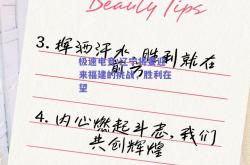 Beauty Tips
3. 挥洒汗水,胜利就在
前方
极速电竞:辽宁将要迎
来福建的挑战,胜利在
望
4. 内心燃起斗志,我们
共创辉煌